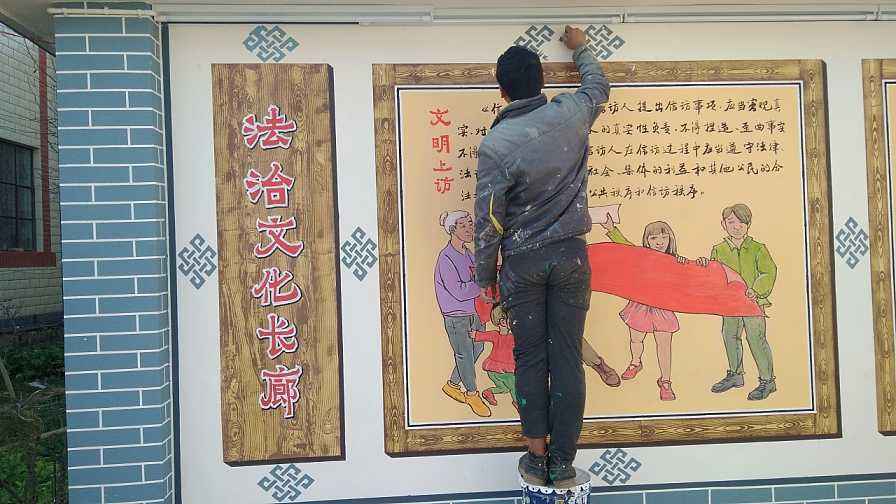 法治文化长廊
文明上访
访人提出信访事项，应当客观真
实，对 人的真实性负责，不得捏造、歪曲事实
不得 访人在信访过程中应当遵守法律、
法 社会、集体的利益和其他公民的合
法 公共秩序和信访秩序。